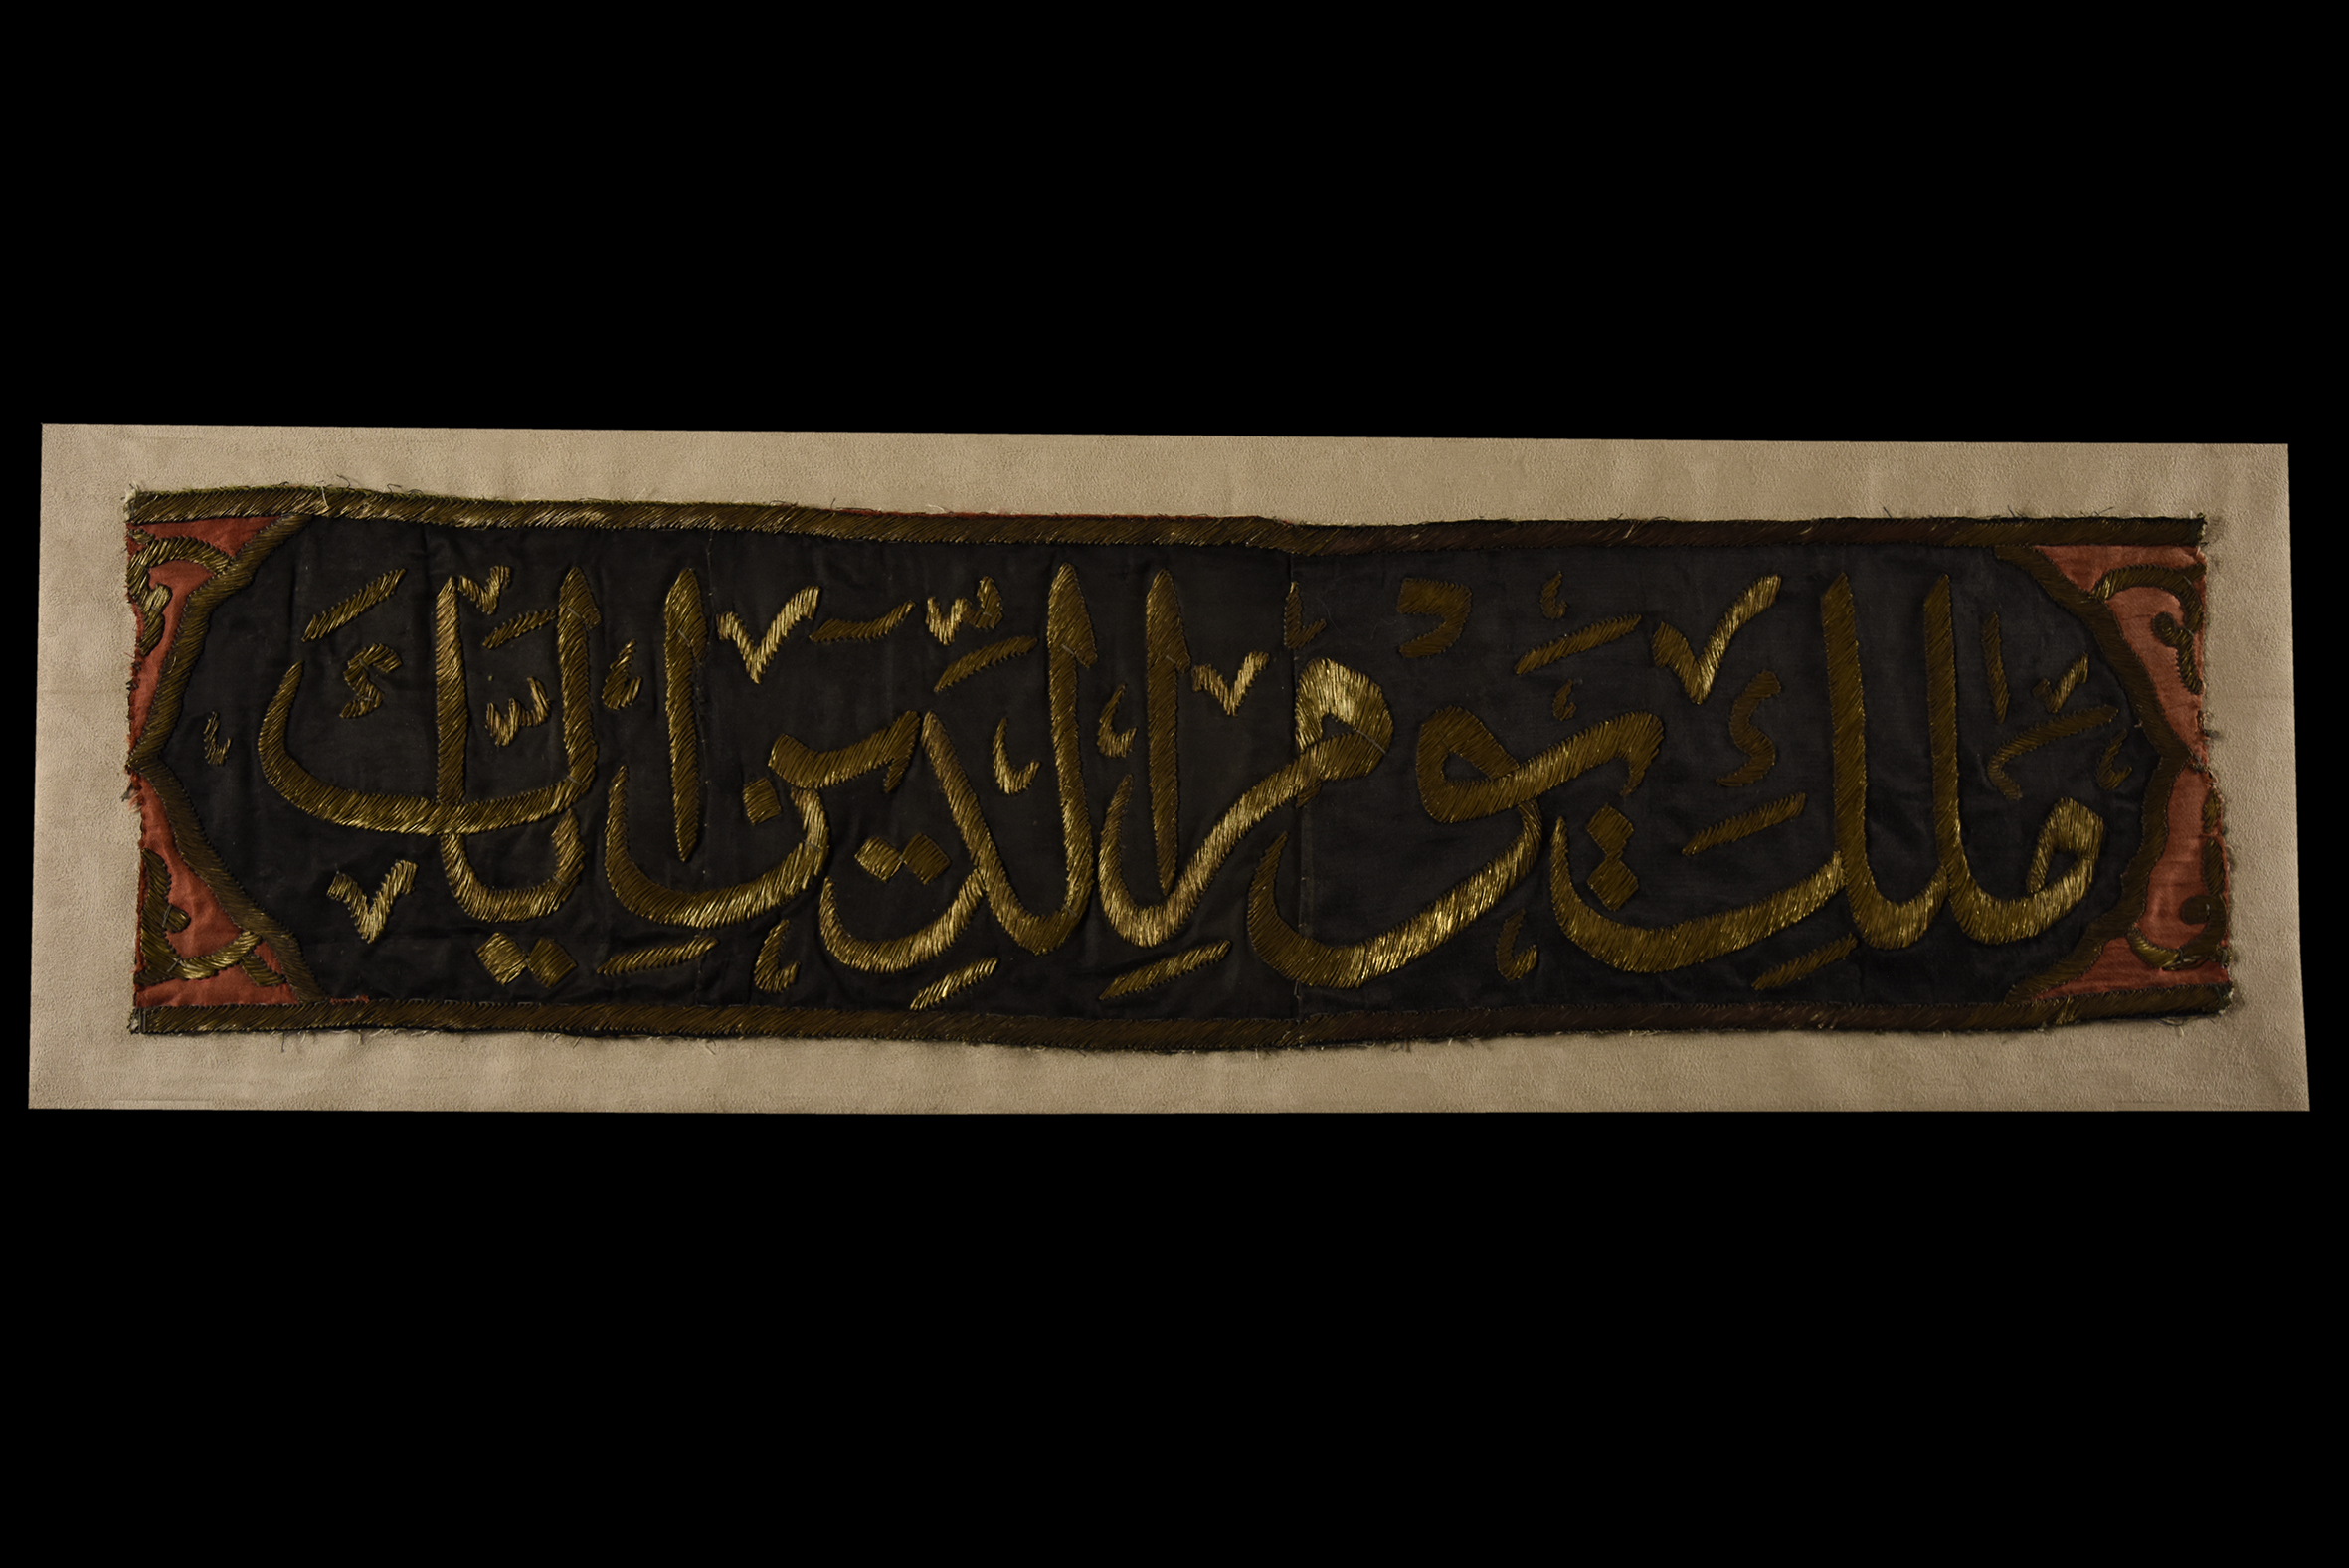 مٰلِكِ يَوْمِ الدِّينِ اِيَّاكَ